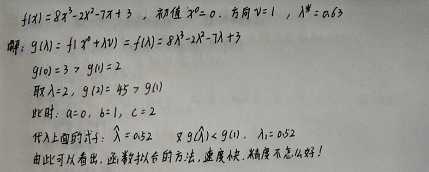 f(x) = 8x³-2x²-7x+3 , 初值 x⁰=0. 方向 v=1 , λ*=0.63
解: g(λ) = f(x⁰+λv) = f(λ) = 8λ³-2λ²-7λ+3
g(0)=3 > g(1)=2
取 λ=2, g(2)=45 > g(1)
此时: a=0, b=1, c=2
代入上面的式子: λ̂=0.52 又 g(λ̂)<g(1). λ₁=0.52
由此可以看出, 函数拟合的方法, 速度快. 精度不怎么好!